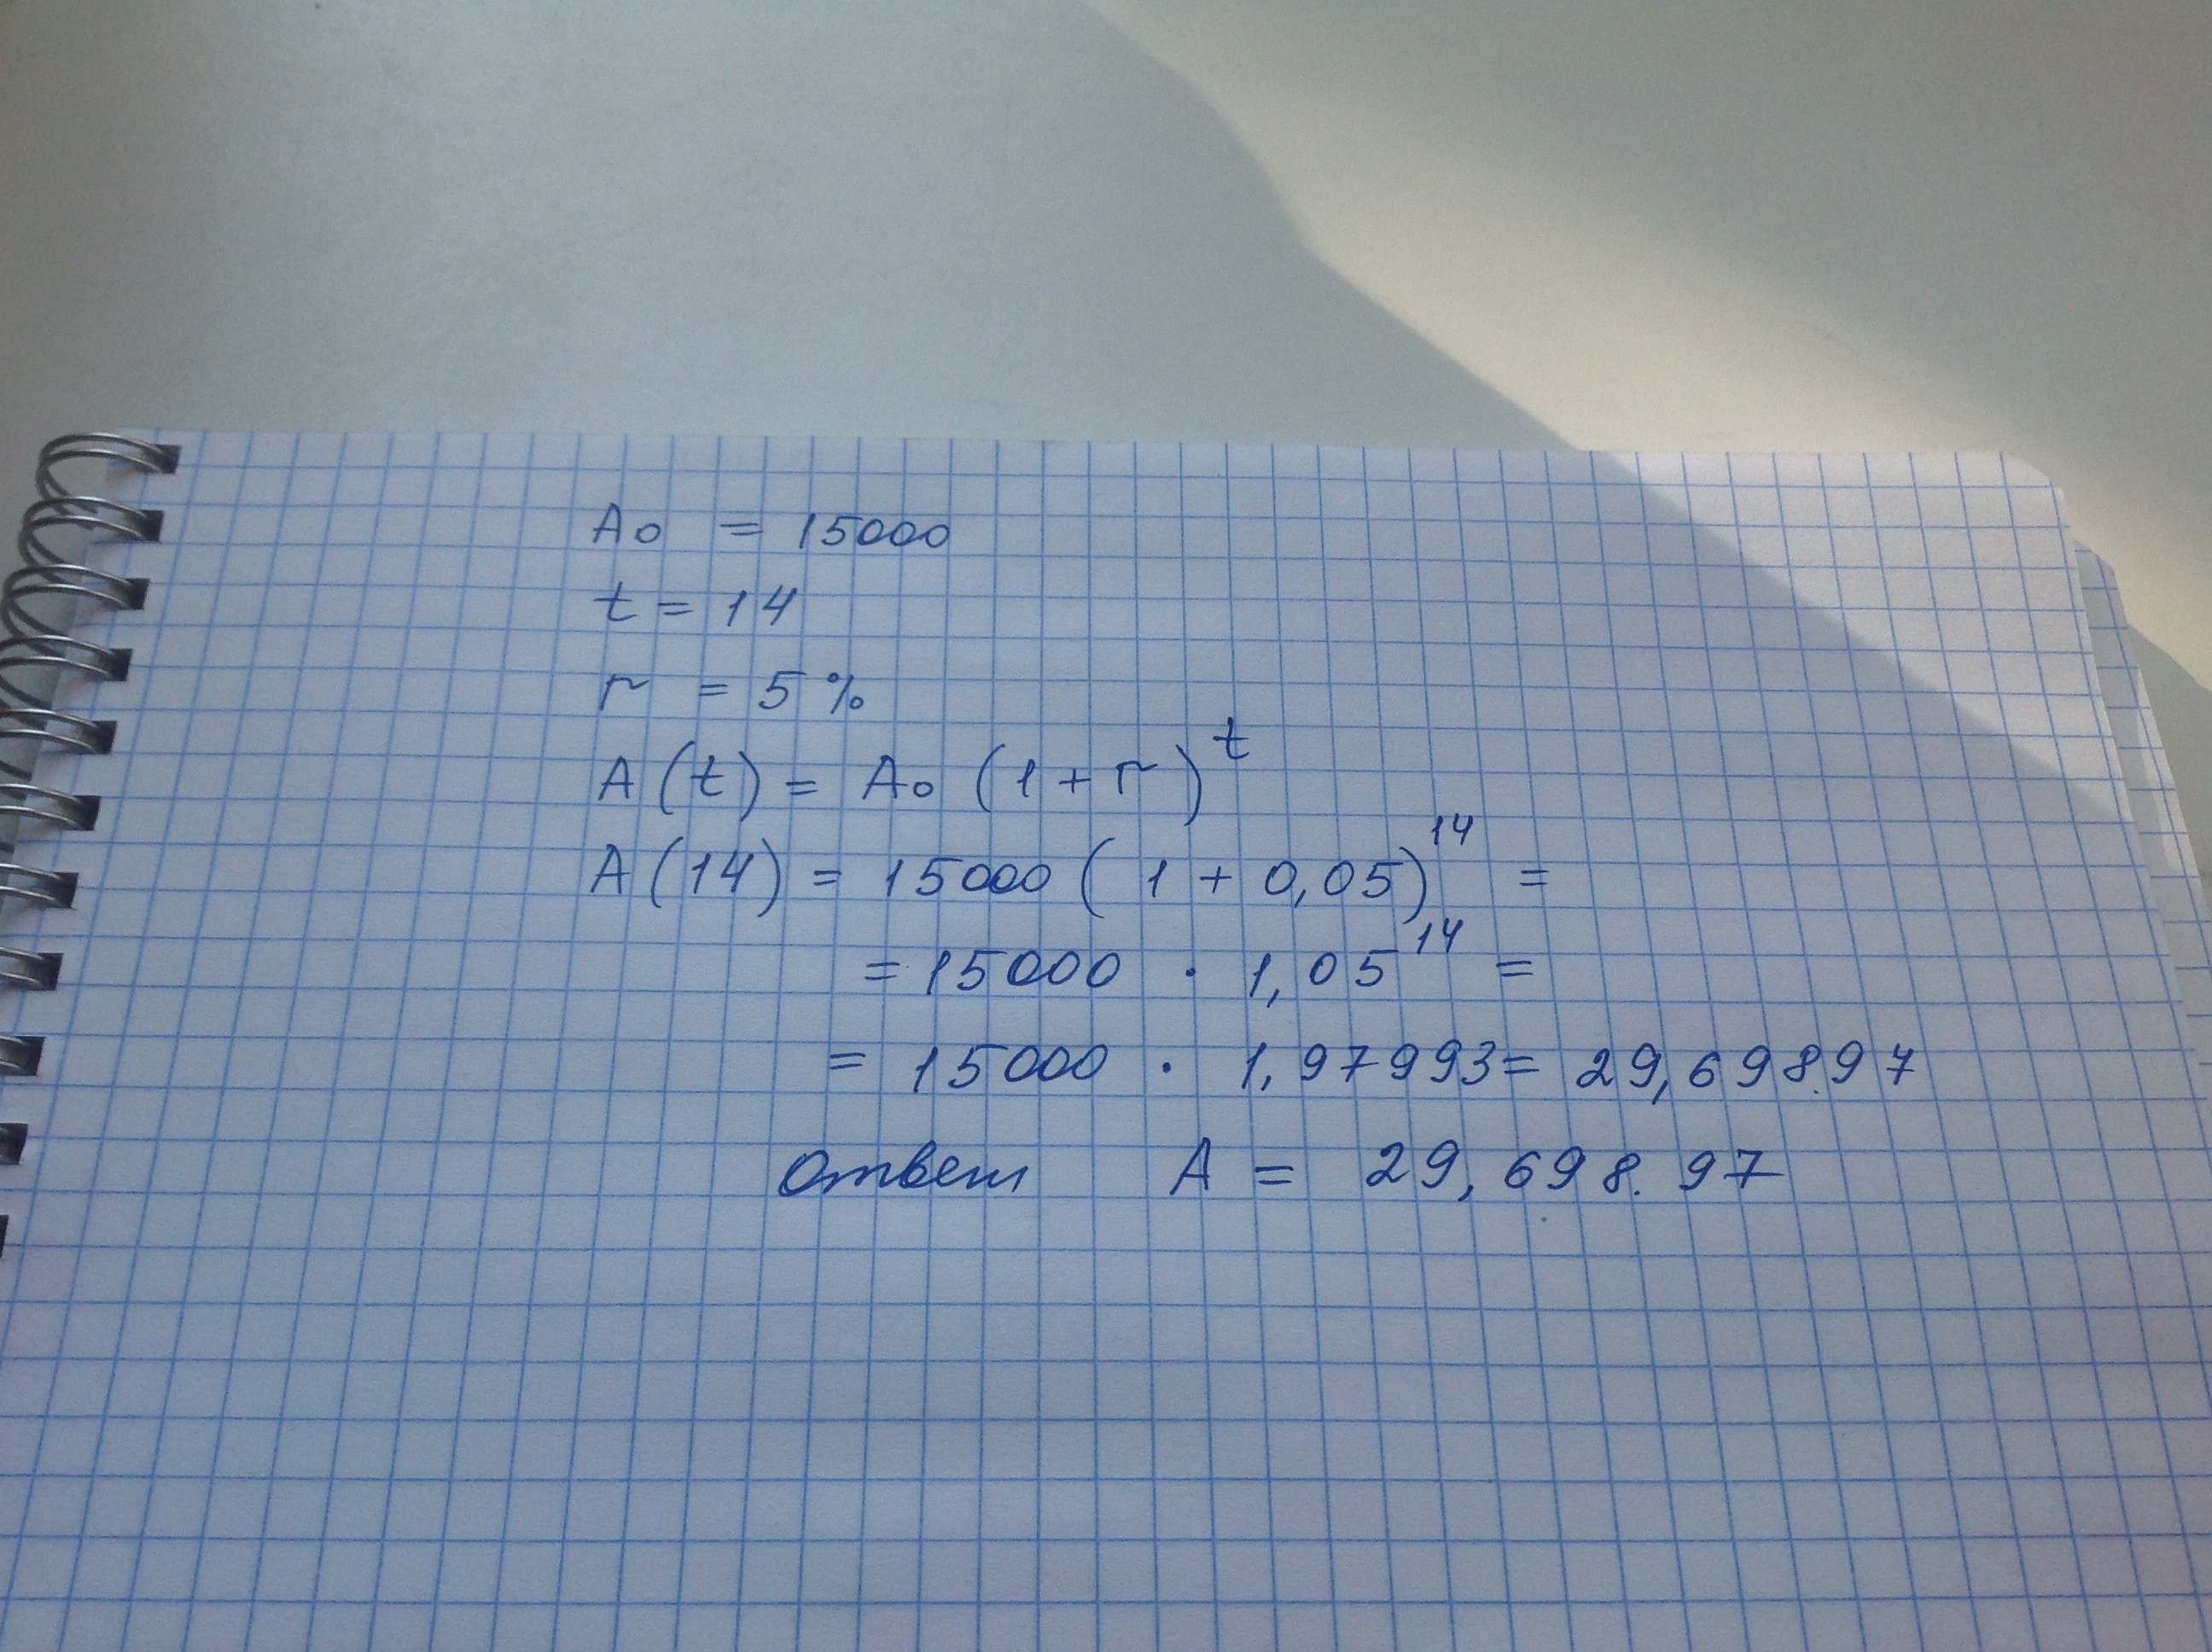 A₀ = 15000
t = 14
r = 5 %
A(t) = A₀ (1 + r)ᵗ
A(14) = 15000 ( 1 + 0,05)¹⁴ =
= 15000 · 1,05¹⁴ =
= 15000 · 1,97993 = 29,698.97
Ответ A = 29,698.97